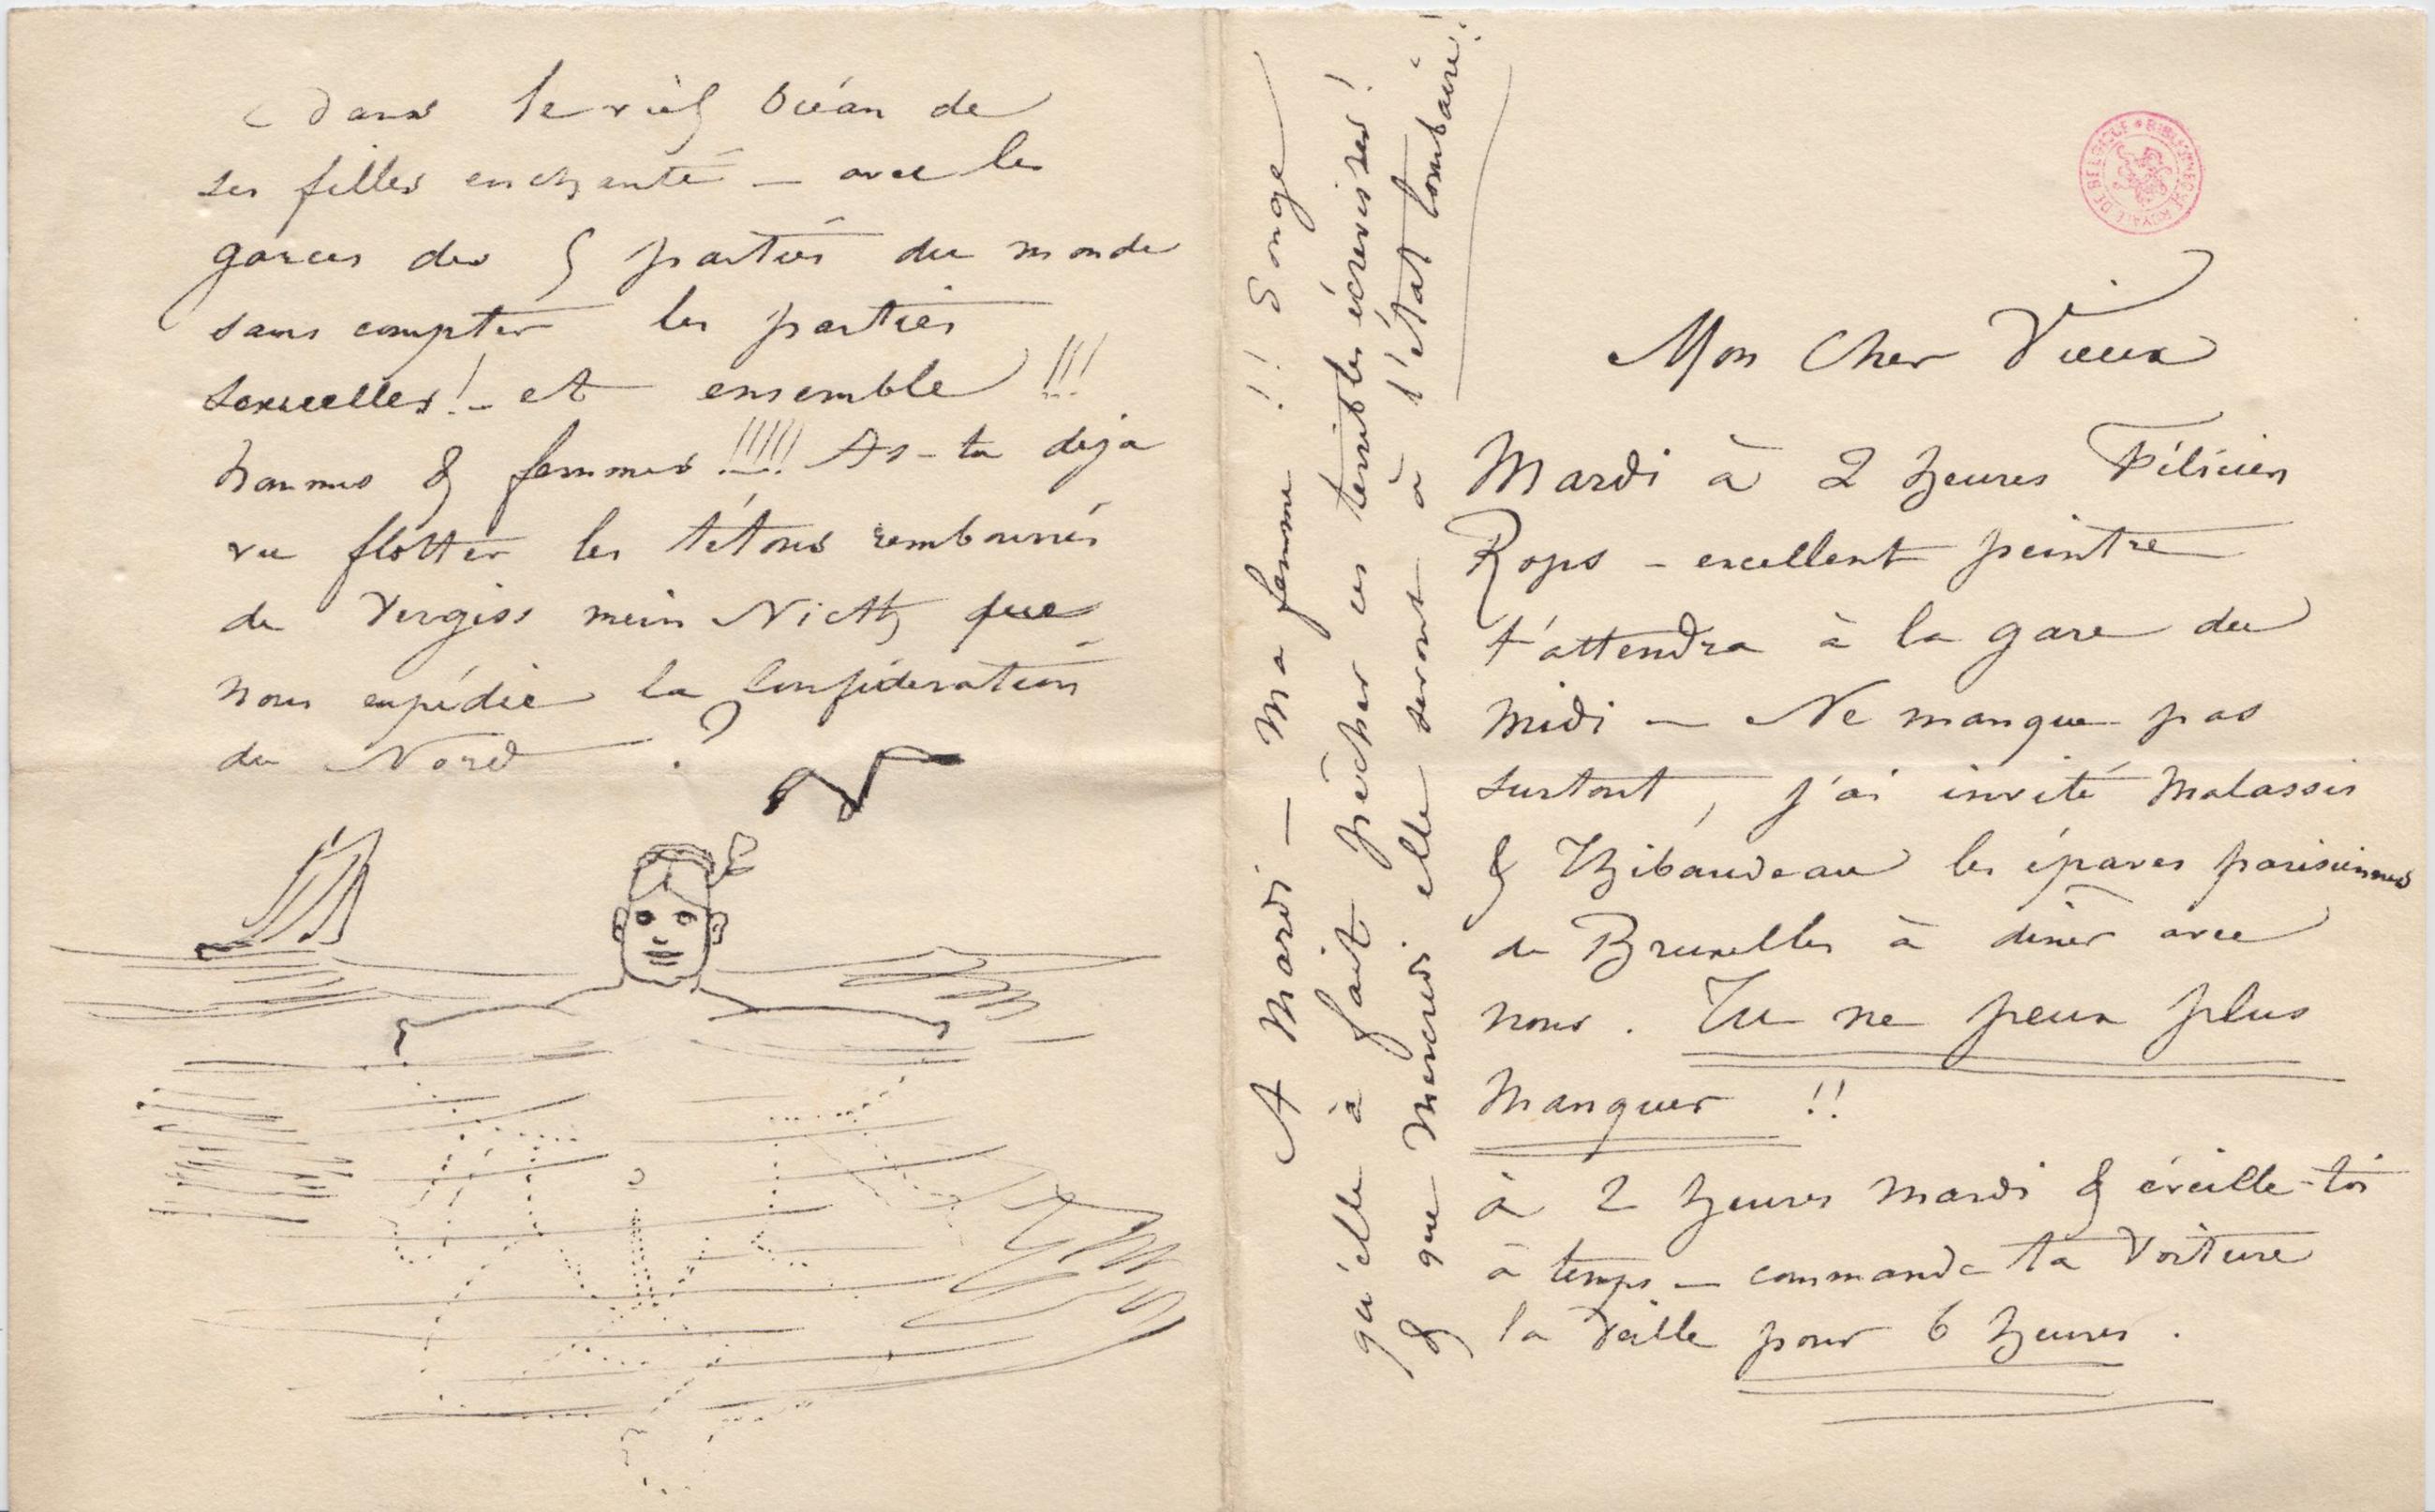 Mon Cher Vieux
Mardi à 2 heures Félicien
Rops – excellent peintre
t'attendra à la gare du
midi – Ne manque pas
surtout, j'ai invité Malassis
& Thibaudeau les épaves parisiennes
de Bruxelles à diner avec
nous. Tu ne peux plus
Manquer !!
à 2 heures mardi & éveille-toi
à temps – commande ta Voiture
la Veille pour 6 heures.
A Mardi – Ma femme !! Songe
qu'elle à fait pêcher ces terribles écrevisses!
& que Mercredi elle seront à l'état lombaire!
dans le vieil Océan de
ses filles enchanté – avec les
garces des 5 parties du monde
sans compter les parties
sexuelles! – et ensemble !!!
hommes & femmes !!!!! As-tu déja
vu flotter les tétons rembourrés
de Vergiss mein Nicht que
nous expédie la Confédération
du Nord ?
BIBLIOTHÈQUE ROYALE DE BELGIQUE